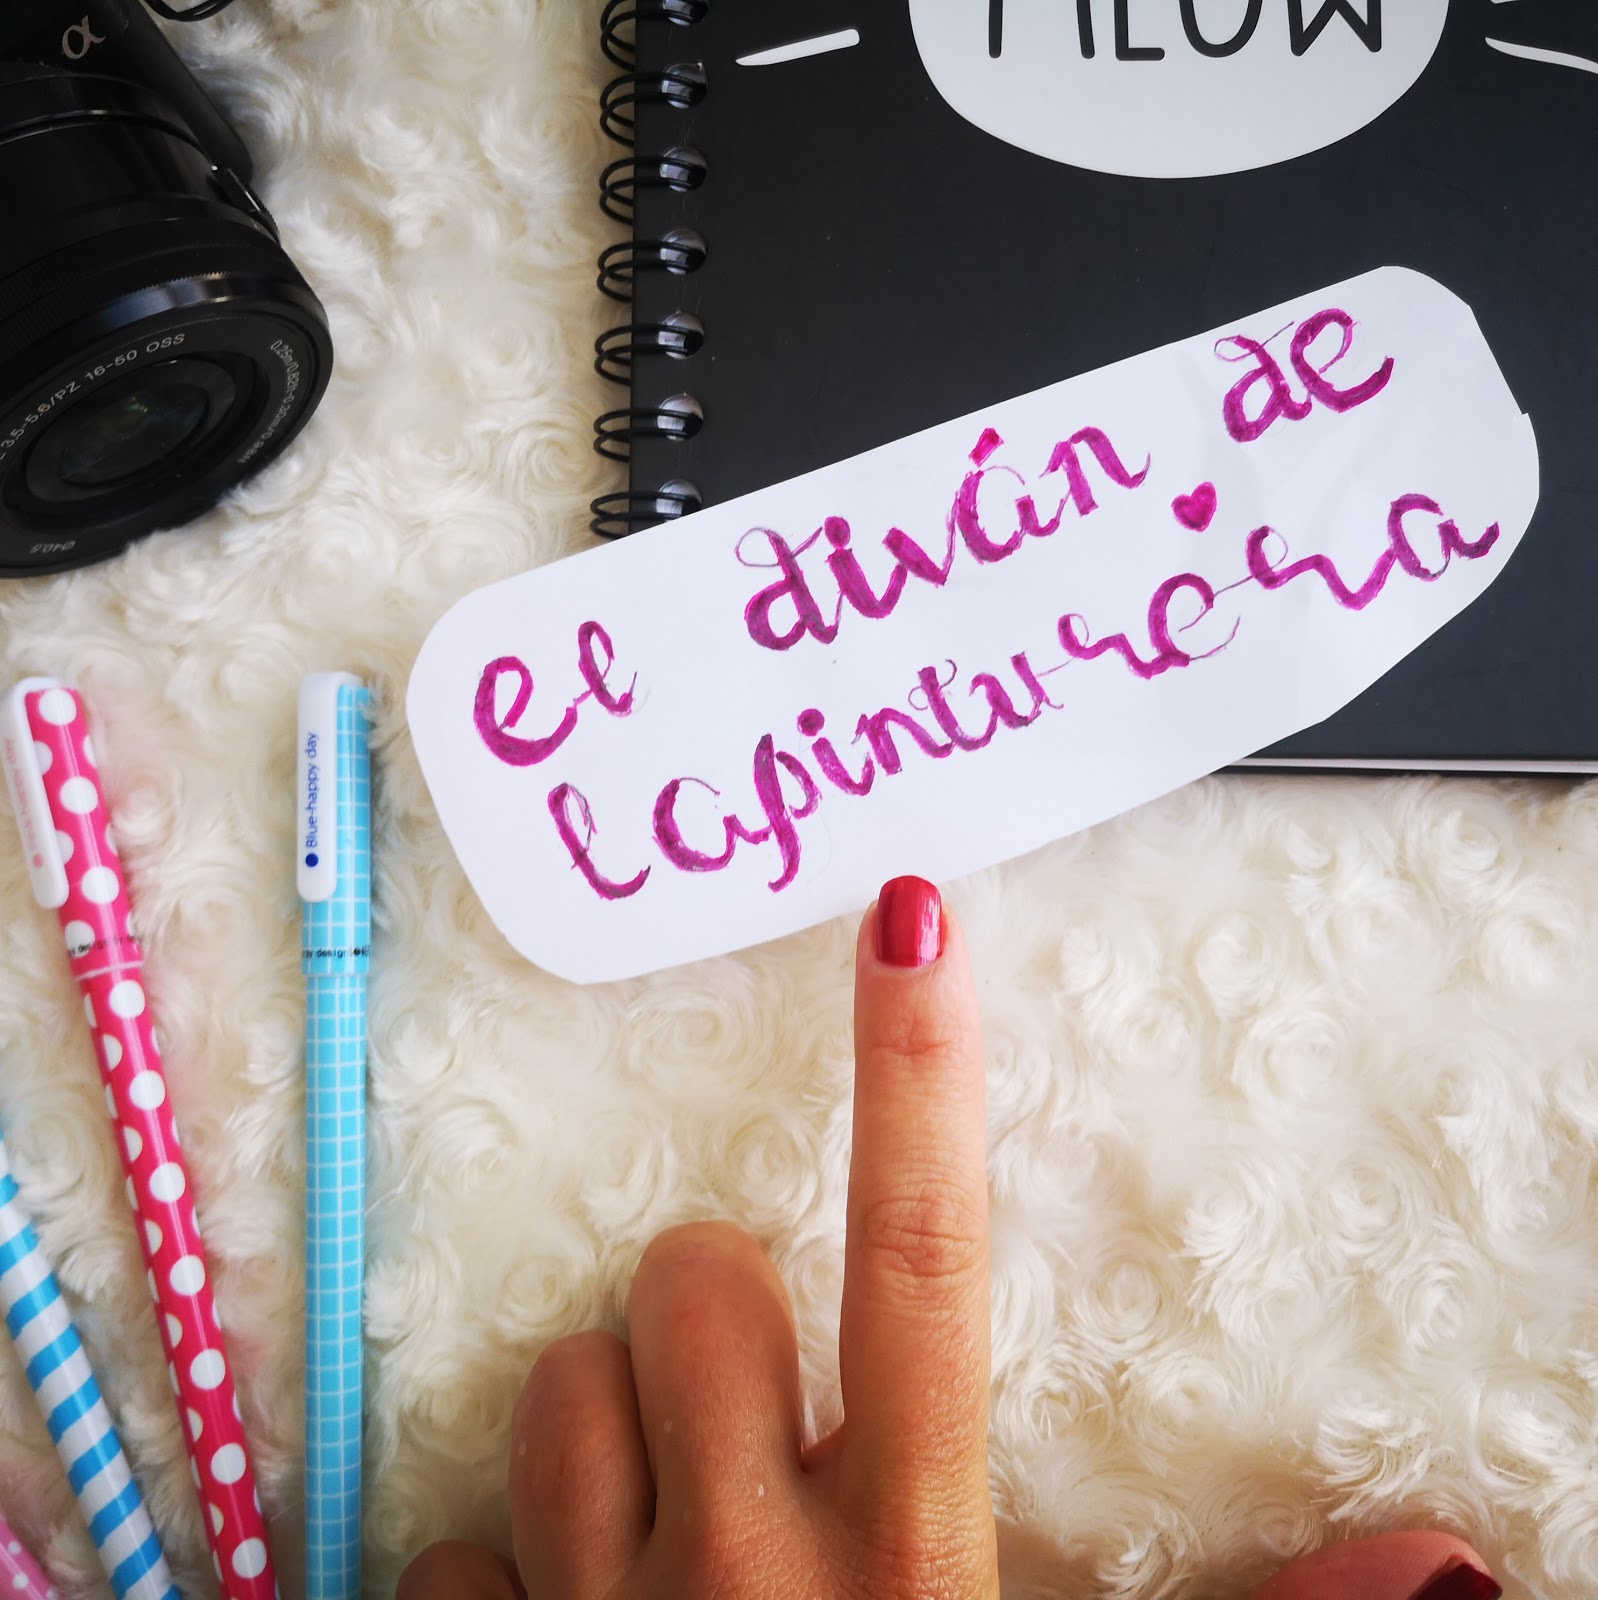 α
MEOW
3.5-5.6/PZ 16-50 OSS
Ø40.5
el diván de
lapinturera
Blue-happy day